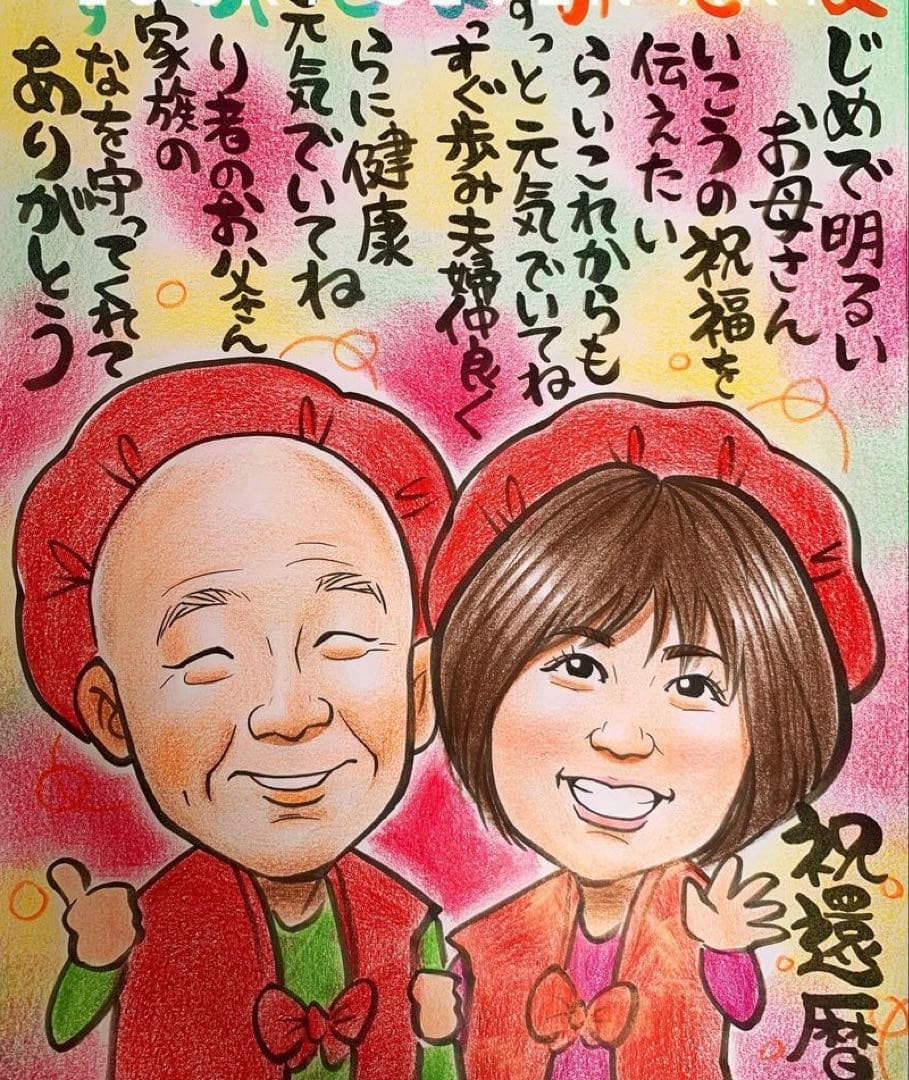 じめで明るい
お母さん
いこうの祝福を
伝えたい
らいこれからも
ずっと元気でいてね
っすぐ歩み夫婦仲良く
らに健康
元気でいてね
り者のお父さん
家族の
なを守ってくれて
ありがとう
祝還暦